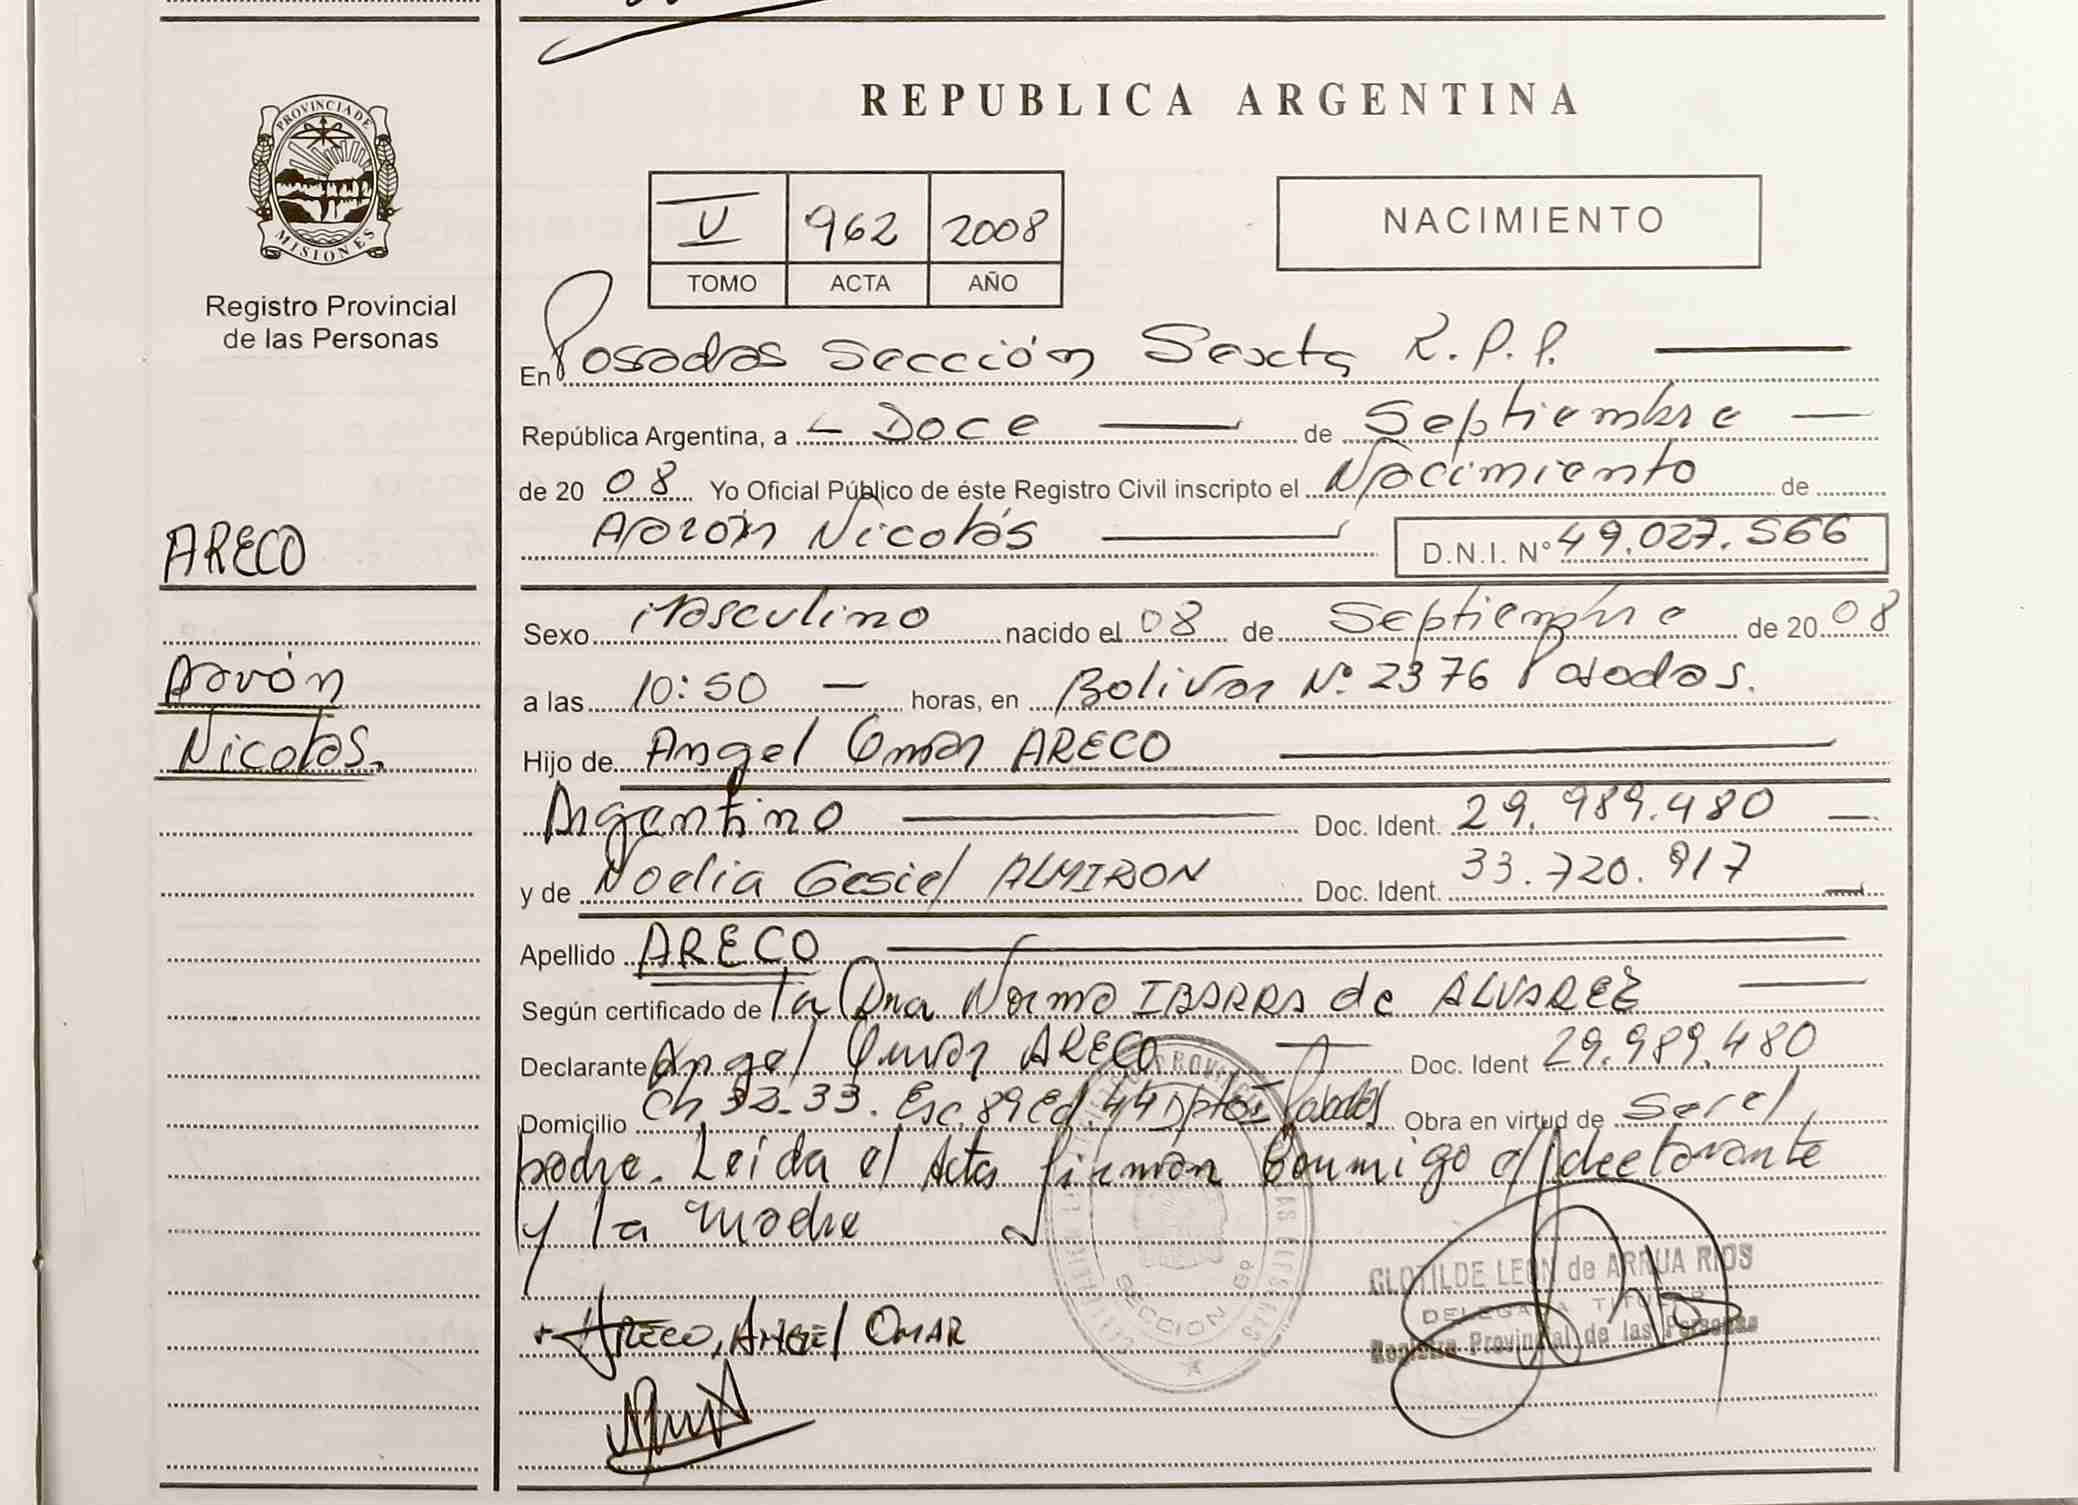 REPUBLICA ARGENTINA
PROVINCIA DE MISIONES
Registro Provincial
de las Personas
V 962 2008
TOMO ACTA AÑO
NACIMIENTO
En Posadas Sección Sexta R.P.P.
República Argentina, a Doce de Septiembre
de 20 08 Yo Oficial Público de éste Registro Civil inscripto el Nacimiento de
Aarón Nicolás D.N.I. N° 49.027.566
ARECO
Aarón
Nicolás.
Sexo Masculino nacido el 08 de Septiembre de 20 08
a las 10:50 horas, en Bolivar Nº 2376 Posadas.
Hijo de Angel Omar ARECO
Argentino Doc. Ident. 29.989.480
y de Noelia Gesiel ALMIRON Doc. Ident. 33.720.917
Apellido ARECO
Según certificado de la Dra Norma IBARRA de ALVAREZ
Declarante Angel Omar ARECO Doc. Ident 29.989.480
Domicilio Ch 32-33. Esc. 89 Ed. 44 Dpto I Posadas Obra en virtud de Ser el
padre. Leída el Acta firman Conmigo el declarante
y la madre
SECCION 6º
CLOTILDE LEON de ARRUA RIOS
DELEGADA TITULAR
Registro Provincial de las Personas
ARECO, ANGEL OMAR